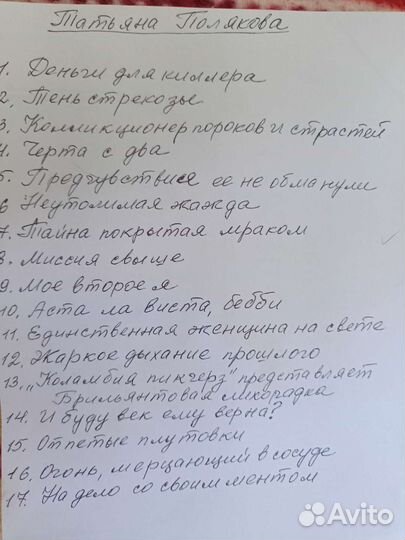 Татьяна Полякова
1. Деньги для киллера
2. Тень стрекозы
3. Колликционер пороков и страстей
4. Черта с два
5. Предчувствие ее не обманули
6 Неутолимая жажда
7. Тайна покрытая мраком
8. Миссия свыше
9. Мое второе я
10. Аста ла виста, бебби
11. Единственная женщина на свете
12. Жаркое дыхание прошлого
13. „Коламбия пикчерз" представляет
Брильянтовая лихорадка
14. И буду век ему верна?
15. Отпетые плутовки
16. Огонь, мерцающий в сосуде
17. На дело со своим ментом
Avito